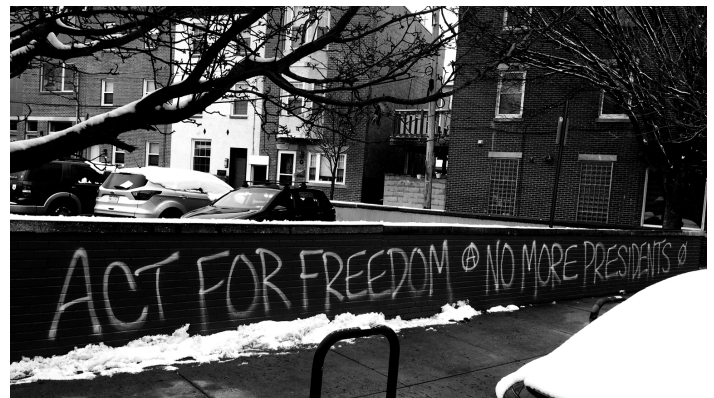 ACT FOR FREEDOM Ⓐ NO MORE PRESIDENTS Ø